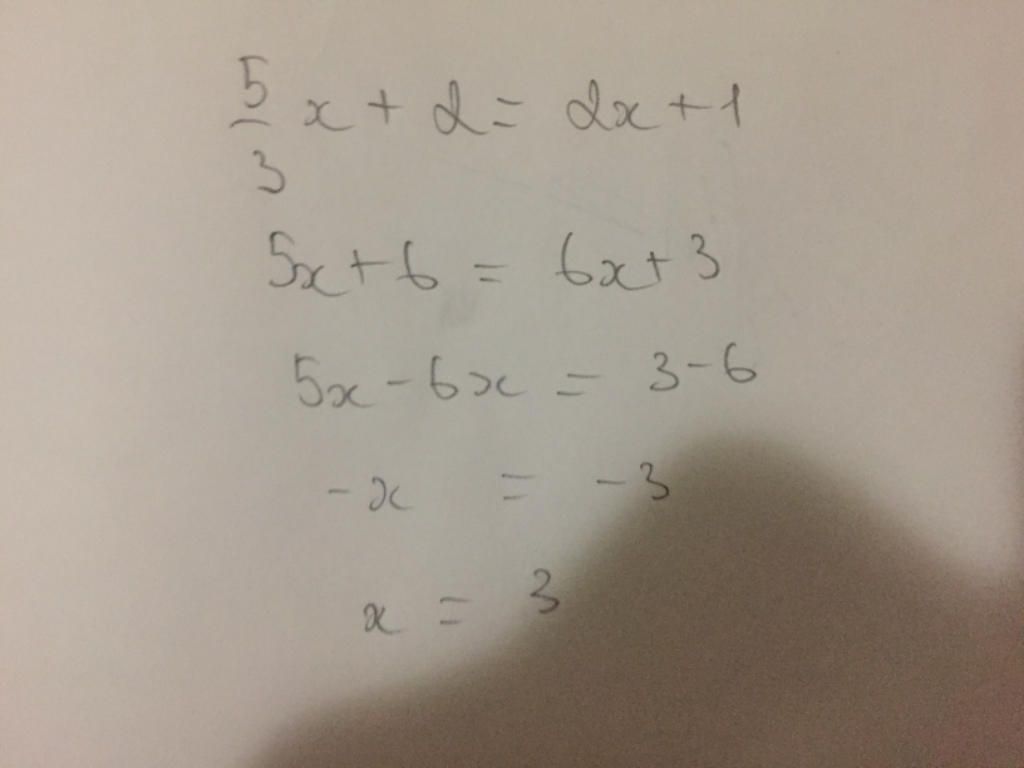 5/3 x + 2 = 2x + 1
5x + 6 = 6x + 3
5x - 6x = 3 - 6
- x = - 3
x = 3